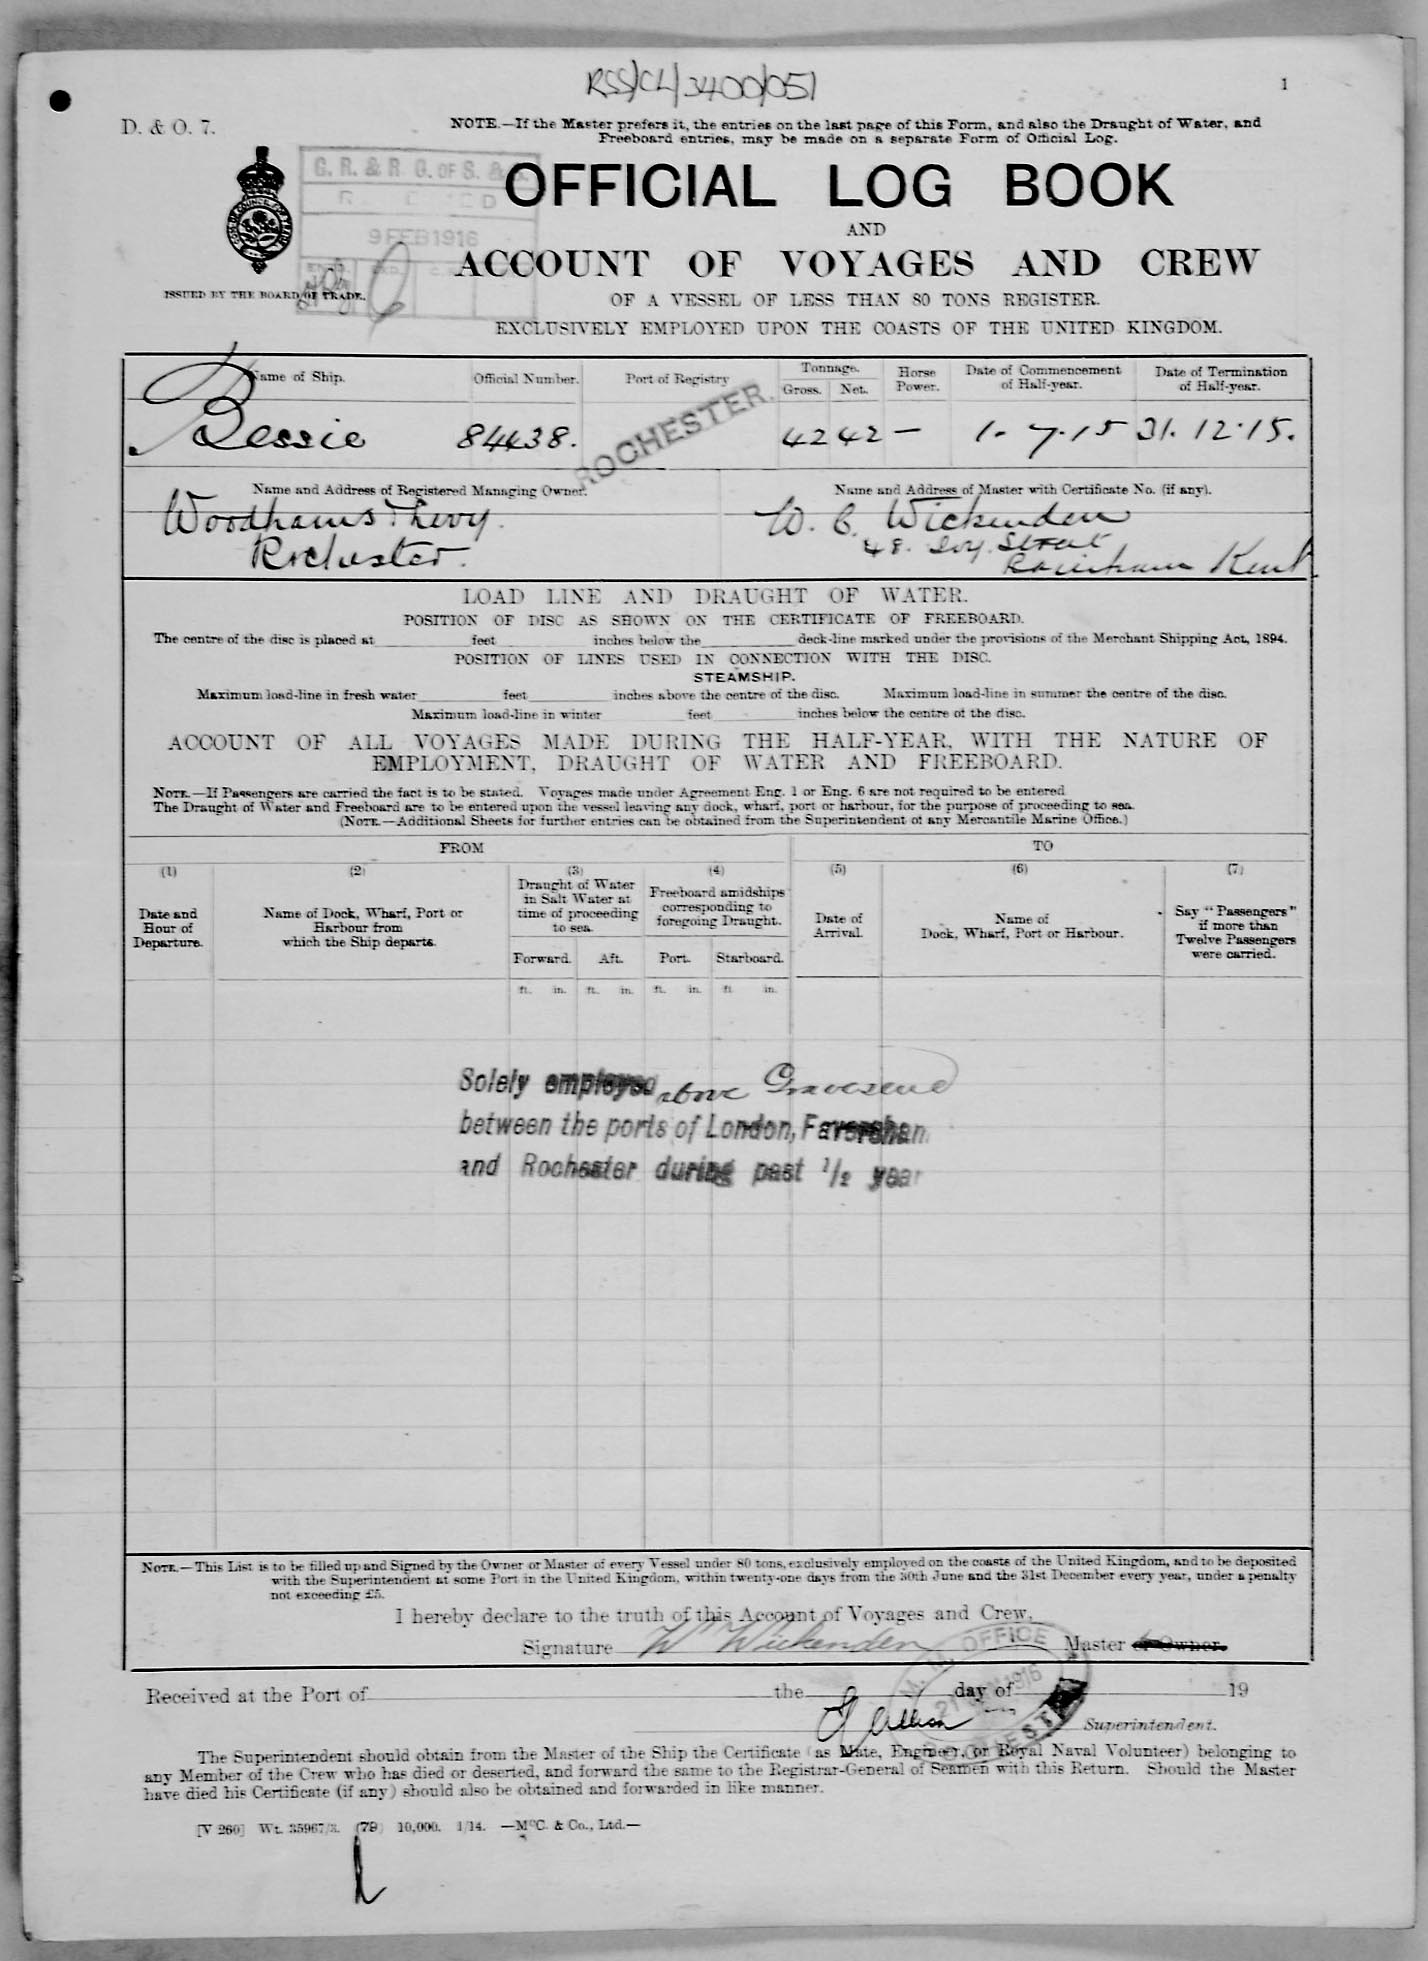 RSS/CL/3400/051
1
D. & O. 7.
NOTE.—If the Master prefers it, the entries on the last page of this Form, and also the Draught of Water, and
Freeboard entries, may be made on a separate Form of Official Log.
C. R. & R. G. OF S. & S.
9 FEB 1916
OFFICIAL LOG BOOK
AND
ACCOUNT OF VOYAGES AND CREW
ISSUED BY THE BOARD OF TRADE.
OF A VESSEL OF LESS THAN 80 TONS REGISTER.
EXCLUSIVELY EMPLOYED UPON THE COASTS OF THE UNITED KINGDOM.
Name of Ship. Official Number. Port of Registry Tonnage. Gross. Net. Horse Power. Date of Commencement of Half-year. Date of Termination of Half-year.
Bessie 84438. ROCHESTER. 42 42 — 1. 7. 15 31. 12. 15.
Name and Address of Registered Managing Owner. Name and Address of Master with Certificate No. (if any).
Woodhams & Levy. W. C. Wickenden
Rochester. 48. Ivy Street
Rainham Kent
LOAD LINE AND DRAUGHT OF WATER.
POSITION OF DISC AS SHOWN ON THE CERTIFICATE OF FREEBOARD.
The centre of the disc is placed at feet inches below the deck-line marked under the provisions of the Merchant Shipping Act, 1894.
POSITION OF LINES USED IN CONNECTION WITH THE DISC.
STEAMSHIP.
Maximum load-line in fresh water feet inches above the centre of the disc. Maximum load-line in summer the centre of the disc.
Maximum load-line in winter feet inches below the centre of the disc.
ACCOUNT OF ALL VOYAGES MADE DURING THE HALF-YEAR, WITH THE NATURE OF
EMPLOYMENT, DRAUGHT OF WATER AND FREEBOARD.
NOTE.—If Passengers are carried the fact is to be stated. Voyages made under Agreement Eng. 1 or Eng. 6 are not required to be entered
The Draught of Water and Freeboard are to be entered upon the vessel leaving any dock, wharf, port or harbour, for the purpose of proceeding to sea.
(NOTE.—Additional Sheets for further entries can be obtained from the Superintendent of any Mercantile Marine Office.)
FROM TO
(1) (2) (3) (4) (5) (6) (7)
Date and Hour of Departure.
Name of Dock, Wharf, Port or Harbour from which the Ship departs.
Draught of Water in Salt Water at time of proceeding to sea.
Freeboard amidships corresponding to foregoing Draught.
Date of Arrival.
Name of Dock, Wharf, Port or Harbour.
Say "Passengers" if more than Twelve Passengers were carried.
Forward. Aft. Port. Starboard.
ft. in. ft. in. ft. in. ft. in.
Solely employed above Gravesend
between the ports of London, Faversham
and Rochester during past 1/2 year
NOTE.—This List is to be filled up and Signed by the Owner or Master of every Vessel under 80 tons, exclusively employed on the coasts of the United Kingdom, and to be deposited
with the Superintendent at some Port in the United Kingdom, within twenty-one days from the 30th June and the 31st December every year, under a penalty
not exceeding £5.
I hereby declare to the truth of this Account of Voyages and Crew,
Signature Wm Wickenden Master or Owner.
M. M. OFFICE
1916
ROCHESTER
Received at the Port of the day of 19
Superintendent.
The Superintendent should obtain from the Master of the Ship the Certificate (as Mate, Engineer, or Royal Naval Volunteer) belonging to
any Member of the Crew who has died or deserted, and forward the same to the Registrar-General of Seamen with this Return. Should the Master
have died his Certificate (if any) should also be obtained and forwarded in like manner.
[V 260] Wt. 35967/3. (79) 10,000. 1/14. —McC. & Co., Ltd.—